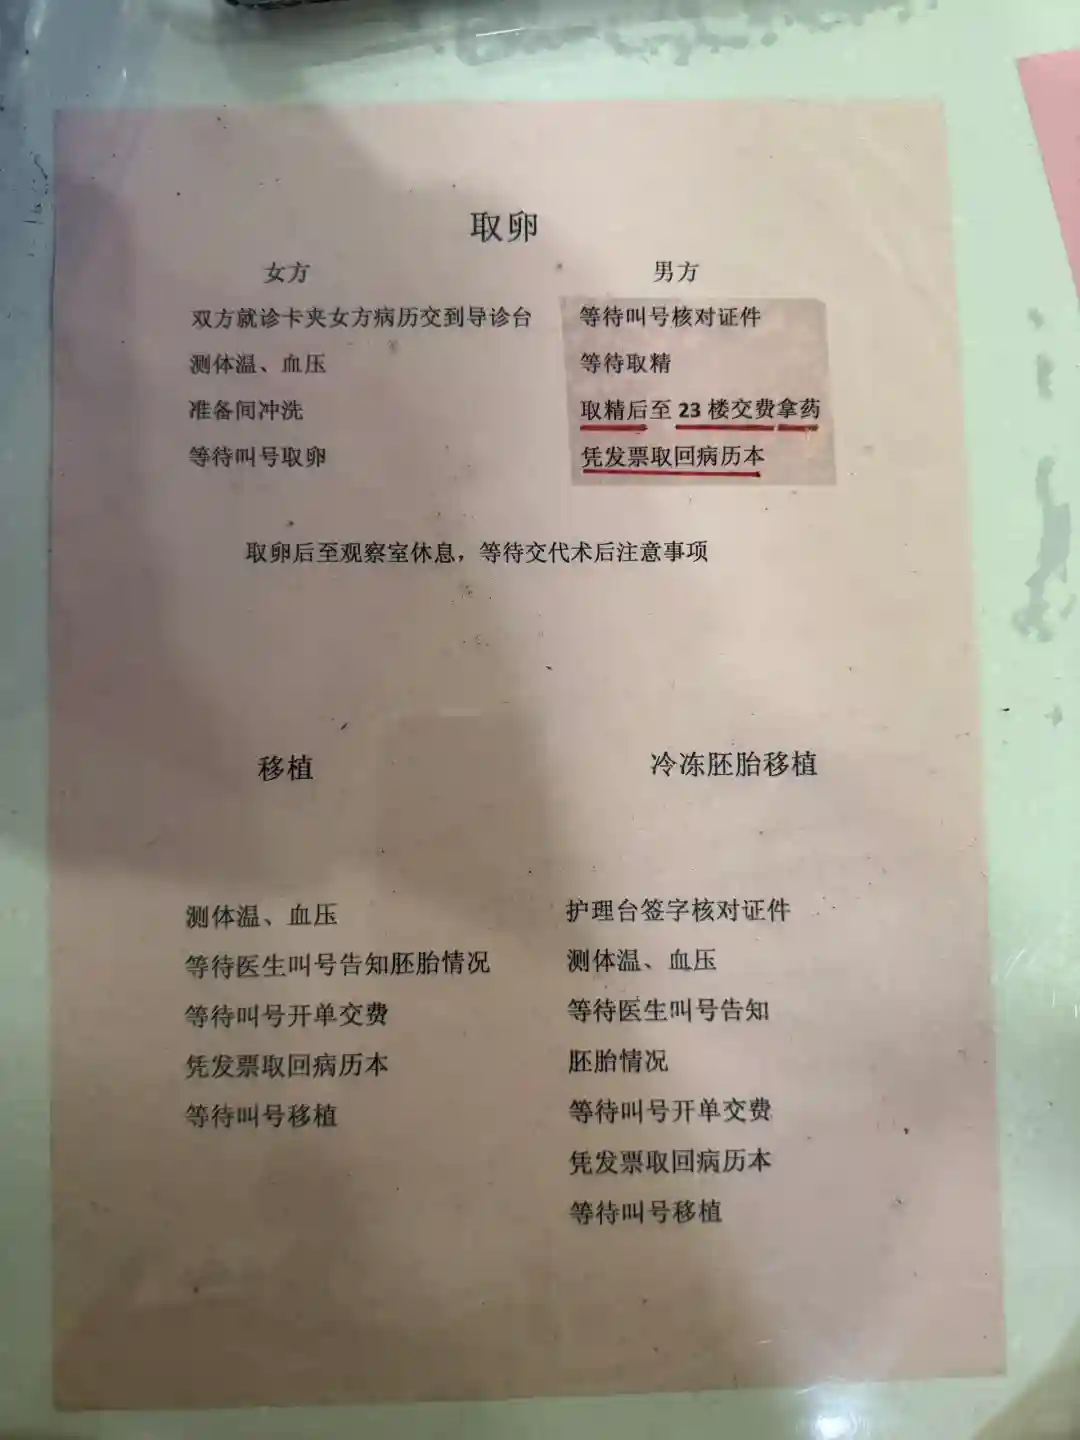 取卵
女方
双方就诊卡夹女方病历交到导诊台
测体温、血压
准备间冲洗
等待叫号取卵
男方
等待叫号核对证件
等待取精
取精后至 23 楼交费拿药
凭发票取回病历本
取卵后至观察室休息，等待交代术后注意事项
移植
测体温、血压
等待医生叫号告知胚胎情况
等待叫号开单交费
凭发票取回病历本
等待叫号移植
冷冻胚胎移植
护理台签字核对证件
测体温、血压
等待医生叫号告知
胚胎情况
等待叫号开单交费
凭发票取回病历本
等待叫号移植